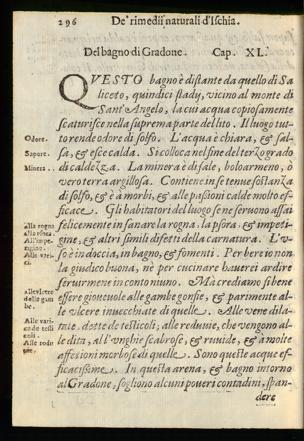 296 De' rimedij naturali d'Ischia.
Del bagno di Gradone. Cap. XL.
QVESTO bagno è distante da quello di Sa
liceto, quindici stadij, vicino al monte di
Sant'Angelo, la cui acqua copiosamente
scaturisce nella suprema parte del lito. Il luogo tut-
to rende odore di solfo. L'acqua è chiara, & sal-
sa, & esce calda. Si colloca nel fine del terzo grado
di caldezza. La minera è di sale, boloarmeno, ò
vero terra argillosa. Contiene in se tenue sostanza
di solfo, & è à morbi, & alle passioni calde molto ef-
ficace. Gli habitatori del luogo se ne seruono assai
felicemente in sanare la rogna, la psora, & impeti-
gine, & altri simili difetti della carnatura. L'v-
so è in doccia, in bagno, & fomenti. Per bere io non
la giudico buona, nè per cucinare hauerei ardire
seruirmene in conto niuno. Mà crediamo sì bene
essere gioueuole alle gambe gonfie, & parimente al-
le vlcere inuecchiate di quelle. Alle vene dila-
tate, dotte de testicoli, alle reduuie, che vengono al-
le dita, all'vnghie scabrose, & ruuide, & à molte
affezioni morbose di quelle. Sono queste acque ef-
ficacissime. In questa arena, & bagno intorno
al Gradone, sogliono alcuni poueri contadini, span-
dere
Odore.
Sapore.
Minera.
alla rogna
Alle vari-